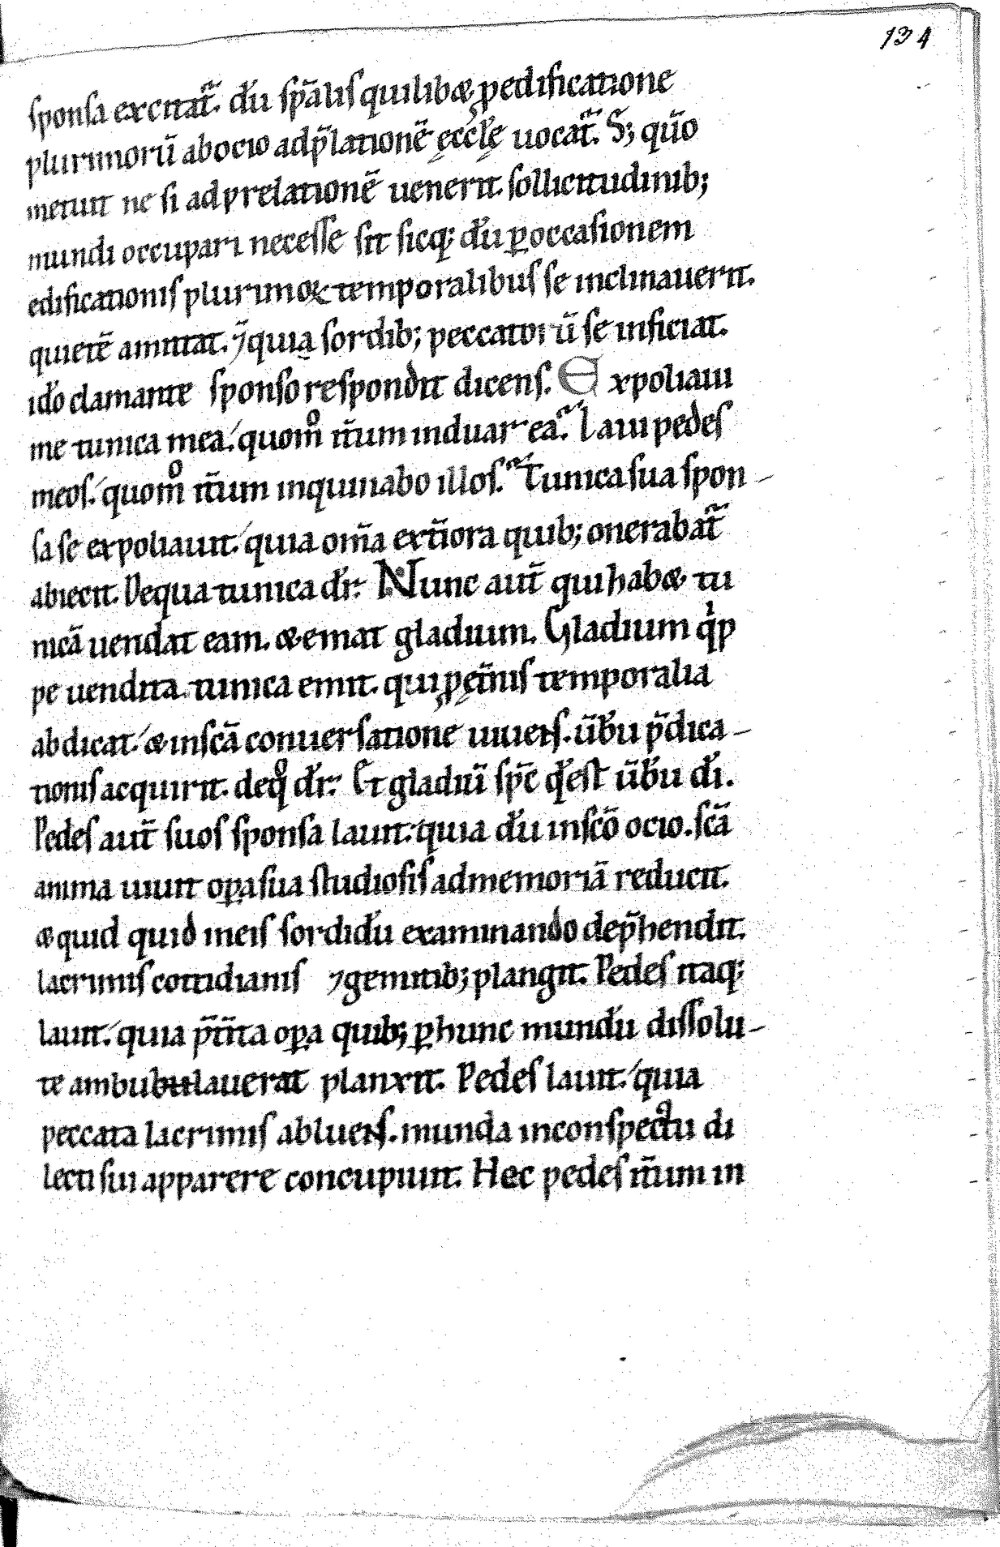 134
sponsa excitat᷑. du᷑ sp̄alis quilibæ ꝓ edificatione
plurimorū ab ocio ad p̄lationē ęccłę uocat᷑. S; qūo
metuit ne si ad prelationē uenerit. sollicitudinib;
mundi occupari necesse sit sicq; du᷑ ꝑ occasionem
edificationis plurimoꝝ temporalibus se inclinauerit.
quietē amittat. ⁊ quia sordib; peccatorū se inficiat.
ido᷑ clamante sponso respondit dicens. Expoliaui
me tunica mea. quomͦ nūm induar ea. Laui pedes
meos. quomͦ nūm inquinabo illos. Tunica sua spon-
sa se expoliauit. quia om̄a extīora quib; onerabat᷑
abiecit. De qua tunica dr᷑. Nunc aut̄ qui habæ tu
nicā uendat eam. æ emat gladium. Gladium qͥp
pe uendita tunica emit. qui ꝓ ęt̄nis temporalia
abdicat. æ in scā conuersatione uiuens. ūbu᷑ p̄dica-
tionis acquirit. de qͦ dr᷑. Et gladiū sp̄c qd᷑ est ūbu᷑ di᷑.
Pedes aut̄ suos sponsa lauit. quia du᷑ in scō ocio. scā
anima uiuit opa̱ sua studiosis ad memoriā reducit.
æ quid quid in eis sordidu᷑ examinando dep̄hendit.
lacrimis cottidianis ⁊ gemitib; plangit. Pedes itaq;
lauit. quia p̄t̄ita oꝑa quib; ꝑ hunc mundu᷑ dissolu-
te ambubulauerat planxit. Pedes lauit. quia
peccata lacrimis abluens. munda in conspectu di
lecti sui apparere concupiuit. Hec pedes nūm in